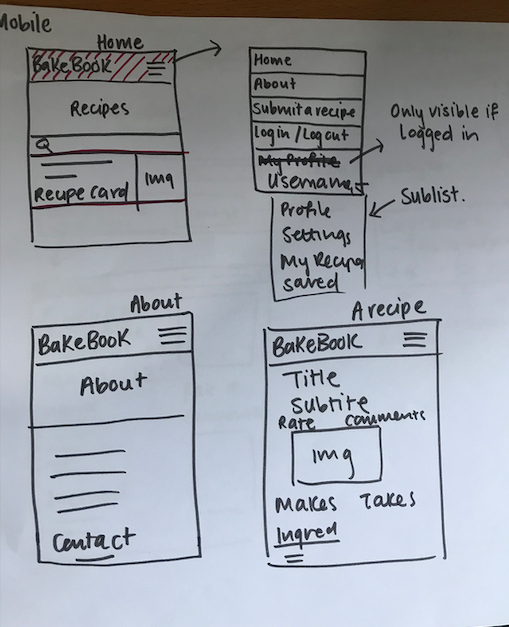 Mobile
Home
BakeBook
Recipes
Recipe Card
Img
Home
About
Submit a recipe
Login / Logout
My Profile
Username
Only visible if
logged in
Profile
Settings
My Recipe
saved
Sublist.
About
BakeBook
About
Contact
A recipe
BakeBook
Title
Subtitle
Rate Comments
Img
Makes Takes
Ingred